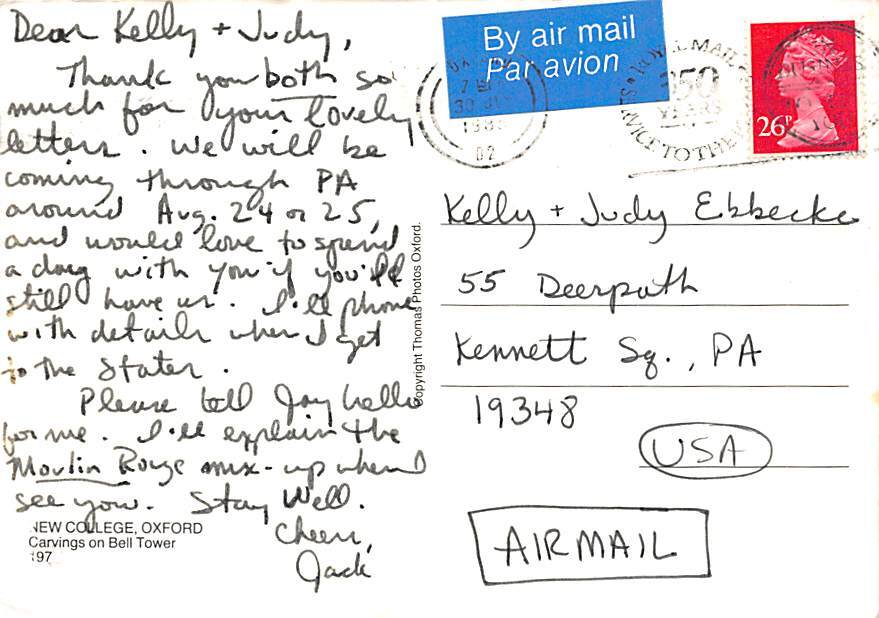 Dear Kelly + Judy,
Thank you both so
much for your lovely
letters. We will be
coming through PA
around Aug. 24 or 25,
and would love to spend
a day with you if you'll
still have us. I'll phone
with details when I get
to the States.
Please tell Jay hello
for me. I'll explain the
Moulin Rouge mix-up when I
see you. Stay Well.
Cheers,
Jack
NEW COLLEGE, OXFORD
Carvings on Bell Tower
197
Copyright Thomas Photos Oxford.
By air mail
Par avion
ROYAL MAIL
350
YEARS
SERVICE TO THE
30
02
26P
Kelly + Judy Ebbecke
55 Deerpath
Kennett Sq., PA
19348
USA
AIRMAIL